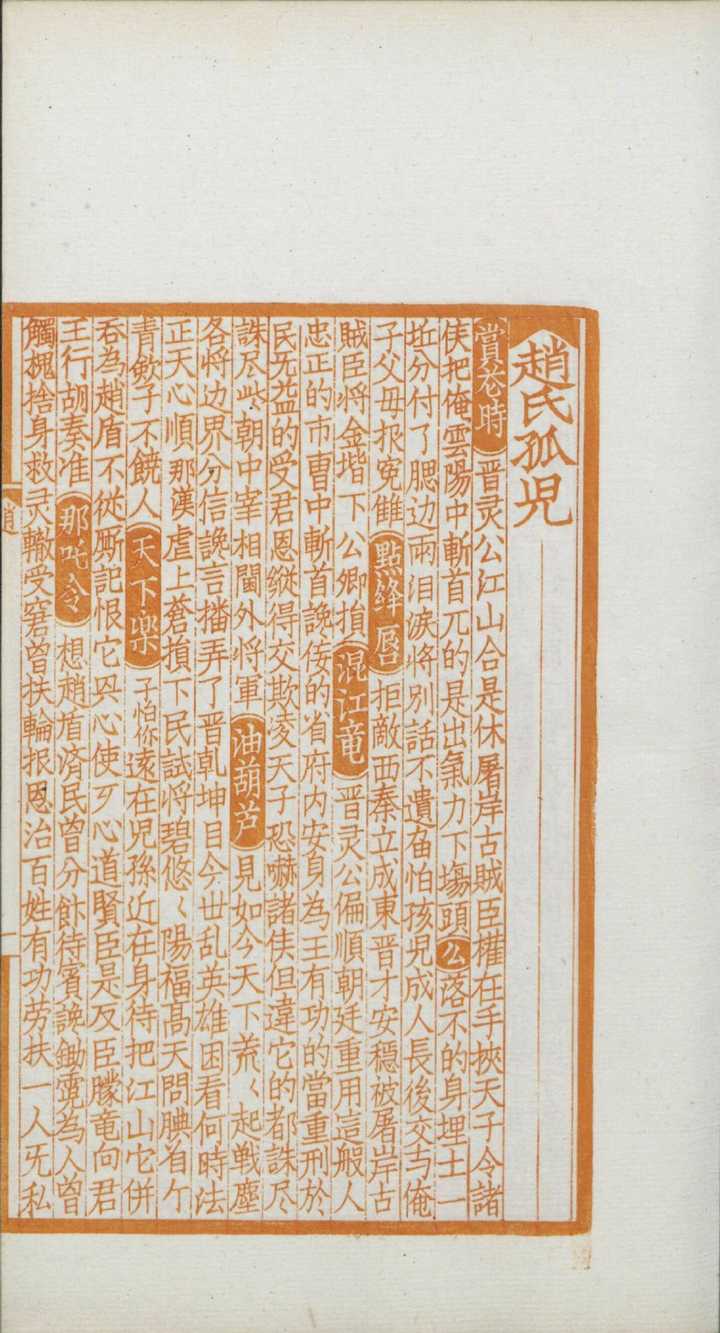 趙氏孤児
賞花時 晋灵公江山合是休屠岸古賊臣權在手挾天子令諸
侯把俺雲陽中斬首兀的是出氣力下塲頭 么 落不的身埋土一
坵分付了腮边兩泪淚将別話不遺留怕孩児成人長後交与俺
子父毋报寃雠 點絳唇 拒敵西秦立成東晋才安穩被屠岸古
賊臣将金堦下公卿損 混江竜 晋灵公偏順朝廷重用這般人
忠正的市曹中斬首讒佞的省府内安身為王有功的當重刑於
民无益的受君恩縱得交欺凌天子恐嚇諸侯但違它的都誅尽
誅尽些朝中宰相閫外将軍 油葫芦 見如今天下荒〱起戦塵
各将边界分信讒言播弄了晋乾坤目今丗乱英雄困看何時法
正天心順那漢虐上蒼損下民試将碧悠〱陽福髙天問腆着个
青歛子不饒人 天下楽 子怕你遠在児孫近在身待把江山它併
吞為趙盾不從厮記恨它㓙心使歹心道賢臣是反臣朦竜向君
王行胡奏准 那吒令 想趙盾済民曽分飰待賓讒鋤霓為人曽
觸槐捨身救灵辙受窘曽扶輪报恩治百姓有功劳扶一人无私
趙